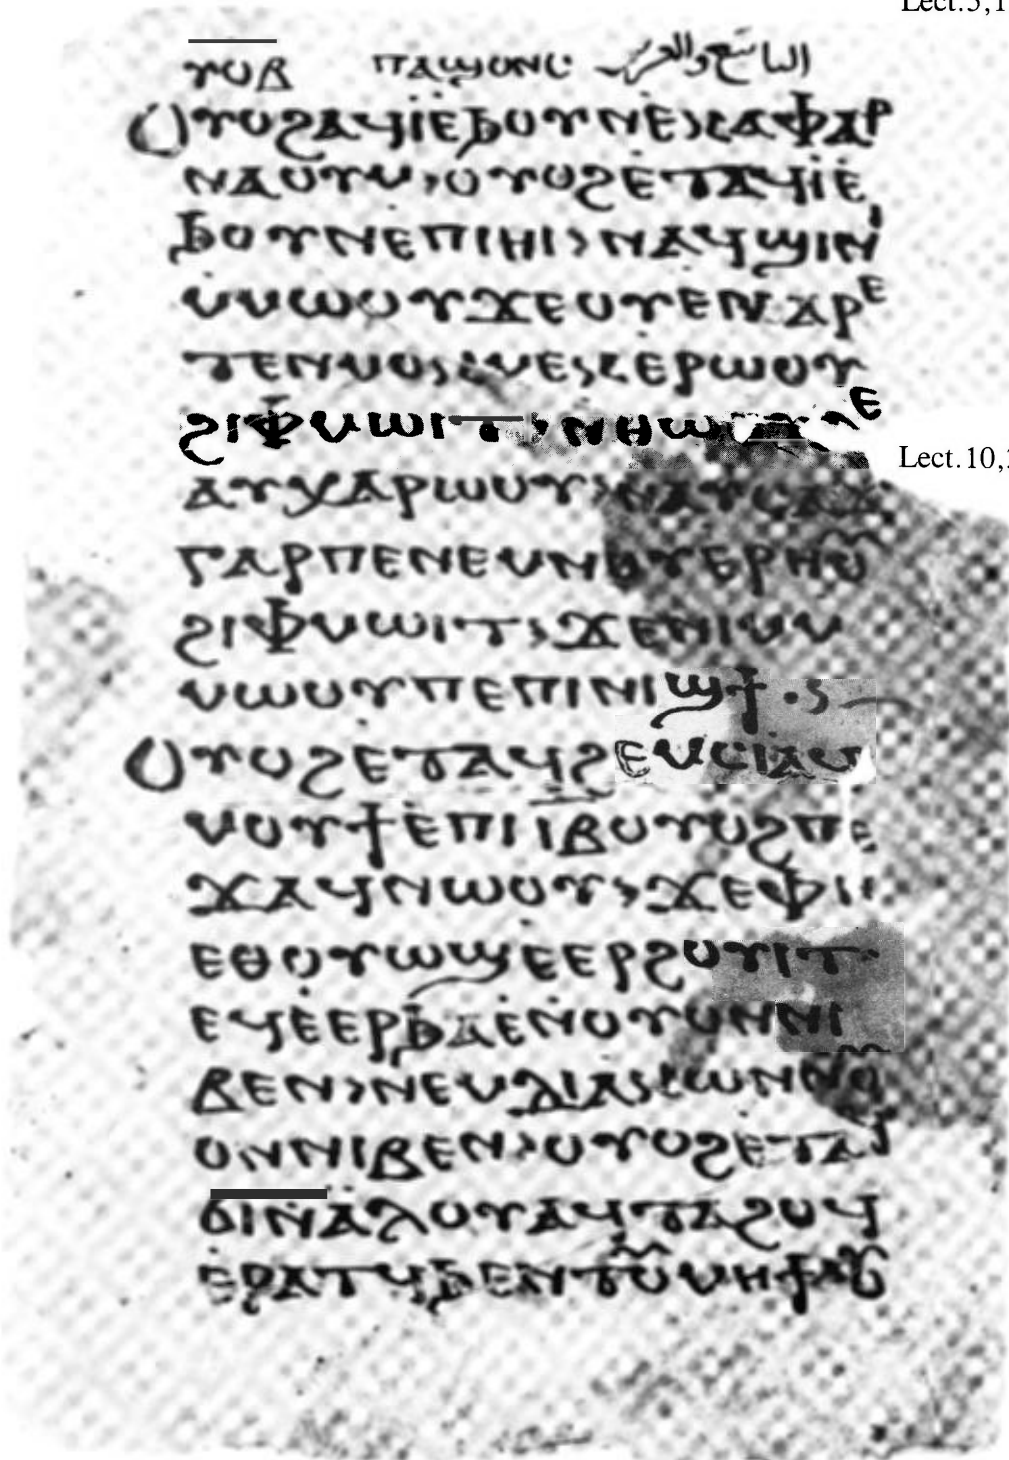 Lect.5,1
ⲩⲟⲃ ⲡⲁϣⲟⲛⲥ
ⲟⲩⲟϩⲁϥⲓⲉϧⲟⲩⲛⲉⲕⲁⲫⲁⲣ
ⲛⲁⲟⲩⲙ ⲟⲩⲟϩⲉⲧⲁϥⲓⲉ
ϧⲟⲩⲛⲉⲡⲓⲏⲓ ⲛⲁϥϣⲓⲛⲓ
ⲙⲙⲱⲟⲩϫⲉⲟⲩⲉⲛⲁⲣⲉ
ⲧⲉⲛⲙⲟⲕⲙⲉⲕⲉⲣⲱⲟⲩ
ϩⲓⲫⲙⲱⲓⲧ ⲛⲑⲱⲟⲩ ⲇⲉ
ⲁⲩⲭⲁⲣⲱⲟⲩ ⲛⲁⲩⲥⲁϫⲓ
Lect.10,
ⲅⲁⲣⲡⲉⲛⲉⲙⲛⲟⲩⲉⲣⲏⲟⲩ
ϩⲓⲫⲙⲱⲓⲧ ϫⲉⲛⲓⲙ
ⲙⲱⲟⲩⲡⲉⲡⲓⲛⲓϣϯ
ⲟⲩⲟϩⲉⲧⲁϥϩⲉⲙⲥⲓⲁϥ
ⲙⲟⲩϯⲉⲡⲓⲓⲃⲟⲩⲟϩⲡⲉ
ϫⲁϥⲛⲱⲟⲩ ϫⲉⲫⲏ
ⲉⲑⲟⲩⲱϣⲉⲉⲣϩⲟⲩⲓⲧ
ⲉϥⲉⲉⲣϧⲁⲉⲛⲟⲩⲟⲛⲛⲓ
ⲃⲉⲛ ⲛⲉⲙⲇⲓⲁⲕⲱⲛⲛⲟⲩ
ⲟⲛⲛⲓⲃⲉⲛ ⲟⲩⲟϩⲉⲧⲁϥ
ϭⲓⲛⲁⲗⲟⲩⲁϥⲧⲁϩⲟϥ
ⲉⲣⲁⲧϥϧⲉⲛⲧⲟⲩⲙⲏϯⲟⲩⲟϩ